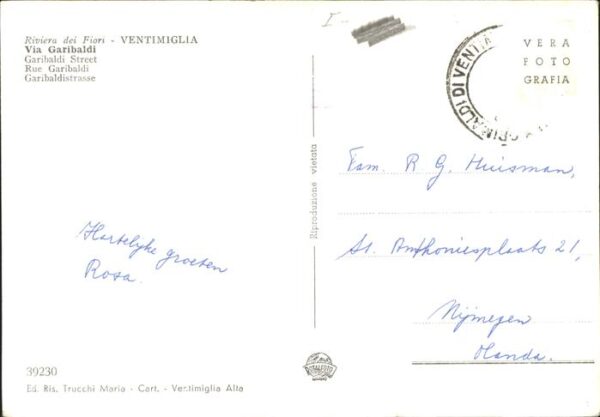 Riviera dei Fiori - VENTIMIGLIA
Via Garibaldi
Garibaldi Street
Rue Garibaldi
Garibaldistrasse
I
VERA
FOTO
GRAFIA
DI VENTI
Riproduzione vietata
Fam. R G. Huisman,
St. Anthoniesplaats 21,
Nijmegen
Olanda.
Hartelyke groeten
Rosa.
39230
Ed. Ris. Trucchi Maria - Cart. - Ventimiglia Alta